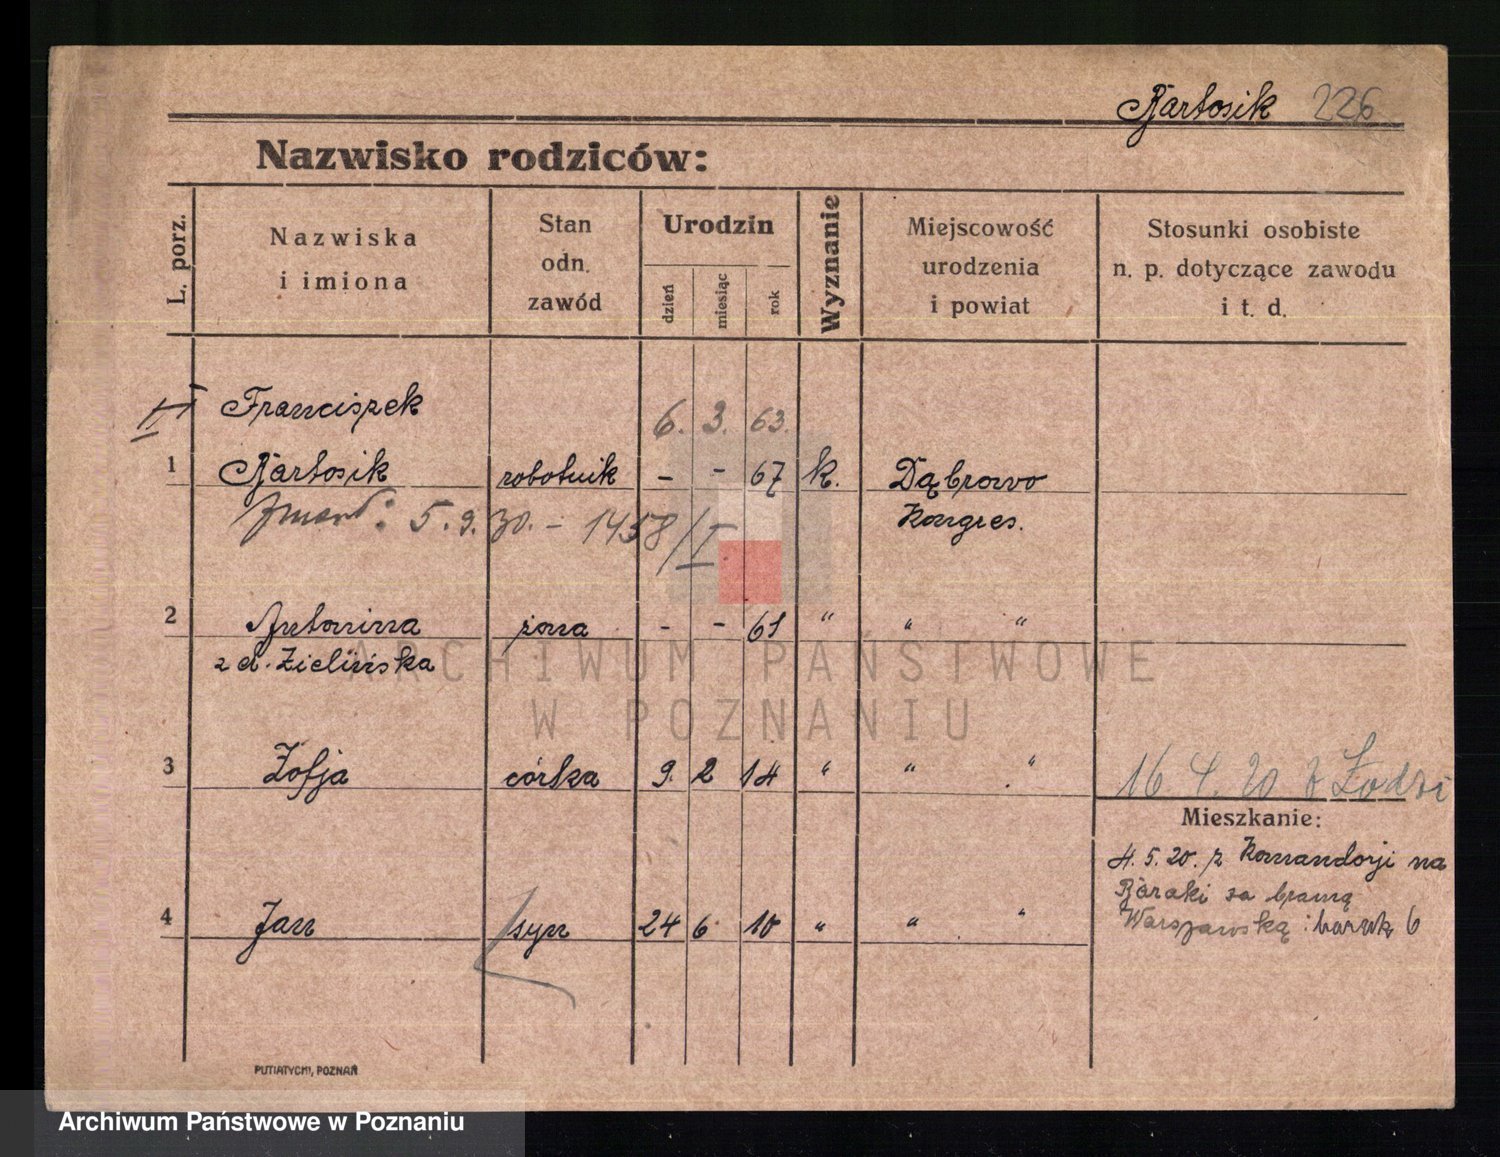 Bartosik 226
Nazwisko rodziców:
L. porz.
Nazwiska
i imiona
Stan
odn.
zawód
Urodzin
dzień
miesiąc
rok
Wyznanie
Miejscowość
urodzenia
i powiat
Stosunki osobiste
n. p. dotyczące zawodu
i t. d.
II Franciszek 6. 3. 63.
1 Bartosik robotnik - - 67 k. Dąbrowo
Kongres.
zmarł: 5.9.30. - 1458/I.
2 Antonina żona - - 61 " " "
z d. Zielińska
3 Zofja córka 9. 2 14 " " " 16. 4. 20 z Łodzi
Mieszkanie:
4.5.20. z Komandorji na
Baraki za bramą
Warszawską: barak 6
4 Jan syn 24 6 10 " " "
PUTIATYCKI, POZNAŃ
ARCHIWUM PAŃSTWOWE
W POZNANIU
Archiwum Państwowe w Poznaniu